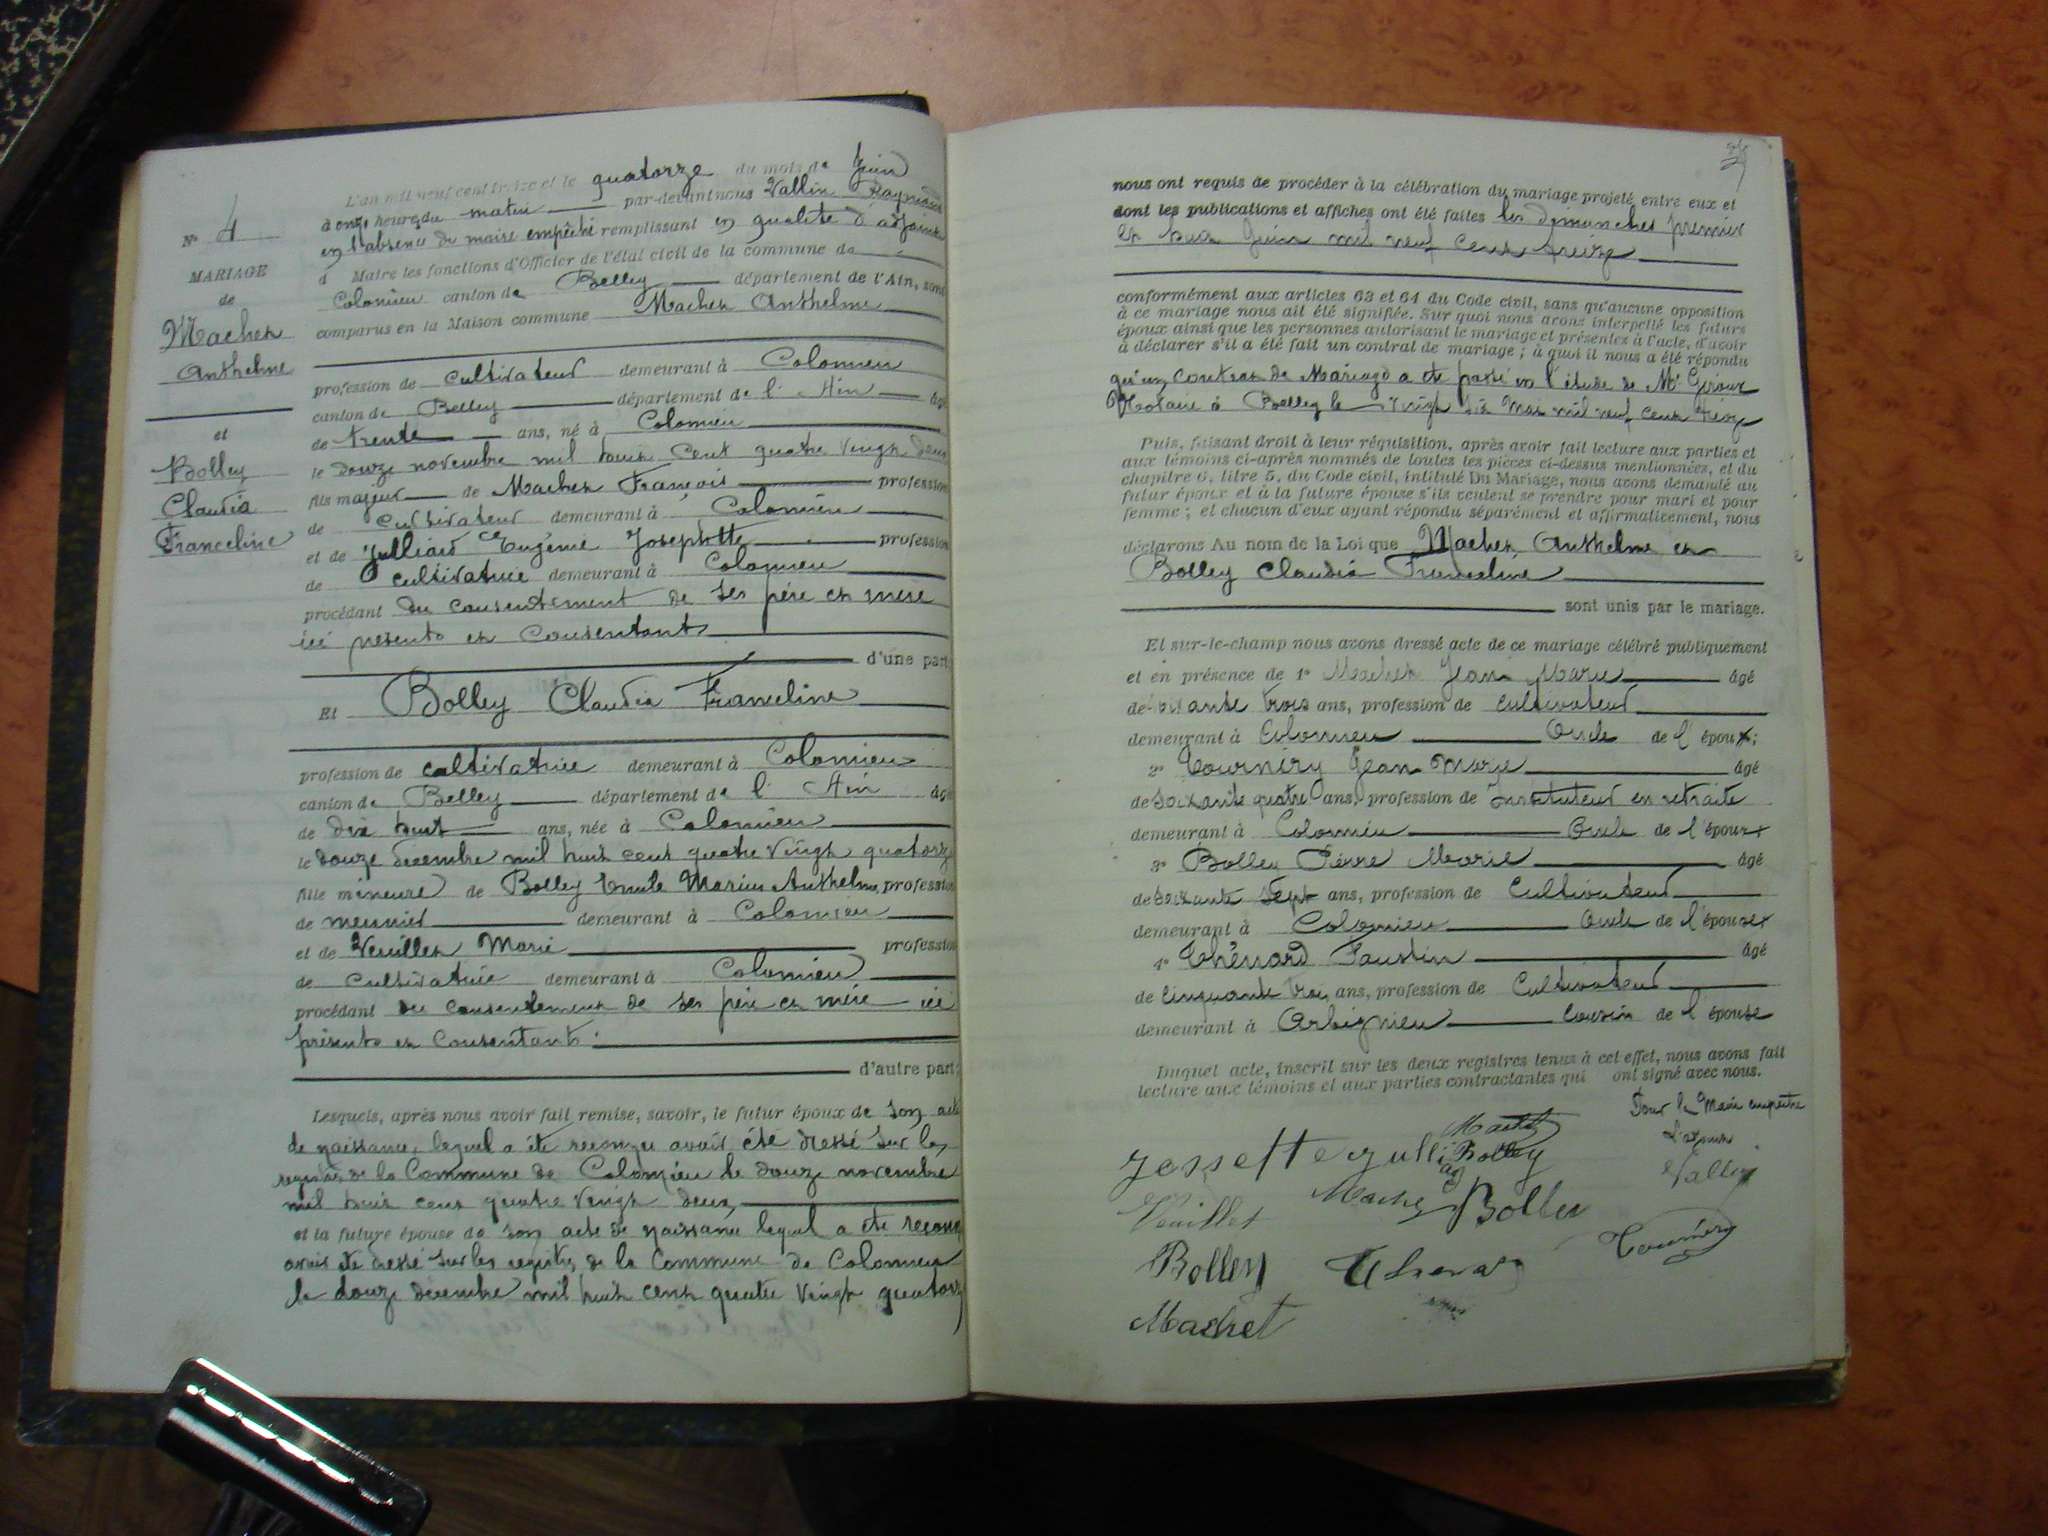 N° 4
MARIAGE
de
Machet
Anthelme
et
Bolley
Claudia
Franceline
L'an mil neuf cent treize et le quatorze du mois de Juin
à onze heures du matin par-devant nous Vallin Raymond
en l'absence du maire empêché remplissant en qualité d'adjoint
d Maire les fonctions d'Officier de l'état civil de la commune de
Colomieu canton de Belley département de l'Ain, sont
comparus en la Maison commune Machet Anthelme
profession de cultivateur demeurant à Colomieu
canton de Belley département de l'Ain âgé
de trente ans, né à Colomieu
le douze novembre mil huit cent quatre vingt deux
fils majeur de Machet François profession
de cultivateur demeurant à Colomieu
et de Julliard Eugénie Josephtte profession
de cultivatrice demeurant à Colomieu
procédant du consentement de ses père et mère
ici présents et consentants
d'une part
Et Bolley Claudia Franceline
profession de cultivatrice demeurant à Colomieu
canton de Belley département de l'Ain âgé
de dix huit ans, née à Colomieu
le douze décembre mil huit cent quatre vingt quatorze
fille mineure de Bolley Emile Marius Anthelme, profession
de meunier demeurant à Colomieu
et de Veuillet Marie profession
de cultivatrice demeurant à Colomieu
procédant du consentement de ses père et mère ici
présents et consentants
d'autre part;
Lesquels, après nous avoir fait remise, savoir, le futur époux de son acte
de naissance, lequel a été reconnu avoir été dressé sur les
registres de la Commune de Colomieu le douze novembre
mil huit cent quatre vingt deux
et la future épouse de son acte de naissance lequel a été reconnu
avoir été dressé sur les registres de la Commune de Colomieu
le douze décembre mil huit cent quatre vingt quatorze
nous ont requis de procéder à la célébration du mariage projeté entre eux et
dont les publications et affiches ont été faites les dimanches premier
et huit Juin mil neuf cent treize
conformément aux articles 63 et 64 du Code civil, sans qu'aucune opposition
à ce mariage nous ait été signifiée. Sur quoi nous avons interpellé les futurs
époux ainsi que les personnes autorisant le mariage et présentes à l'acte, d'avoir
à déclarer s'il a été fait un contrat de mariage ; à quoi il nous a été répondu
qu'un contrat de Mariage a été passé en l'étude de Me
Notaire à Belley le vingt six Mai mil neuf cent treize
Puis, faisant droit à leur réquisition, après avoir fait lecture aux parties et
aux témoins ci-après nommés de toutes les pièces ci-dessus mentionnées, et du
chapitre 6, titre 5, du Code civil, intitulé Du Mariage, nous avons demandé au
futur époux et à la future épouse s'ils veulent se prendre pour mari et pour
femme ; et chacun d'eux ayant répondu séparément et affirmativement, nous
déclarons Au nom de la Loi que Machet Anthelme et
Bolley Claudia Franceline
sont unis par le mariage.
Et sur-le-champ nous avons dressé acte de ce mariage célébré publiquement
et en présence de 1° Machet Jean Marie âgé
de soixante trois ans, profession de cultivateur
demeurant à Colomieu Oncle de l'époux;
2° Tournéry Jean Marie âgé
de soixante quatre ans, profession de Instituteur en retraite
demeurant à Colomieu Oncle de l'époux
3° Bolley Pierre Marie âgé
de soixante sept ans, profession de Cultivateur
demeurant à Colomieu Oncle de l'épouse
4° Thénard Faustin âgé
de cinquante trois ans, profession de Cultivateur
demeurant à Arbignieu Cousin de l'épouse
Duquel acte, inscrit sur les deux registres tenus à cet effet, nous avons fait
lecture aux témoins et aux parties contractantes qui ont signé avec nous.
Pour le Maire empêché
L'adjoint
Vallin
Machet
Josseftte Julli Bolley
Veuillet Machet Bolley
Tournéry
Bolley Thenard
Machet